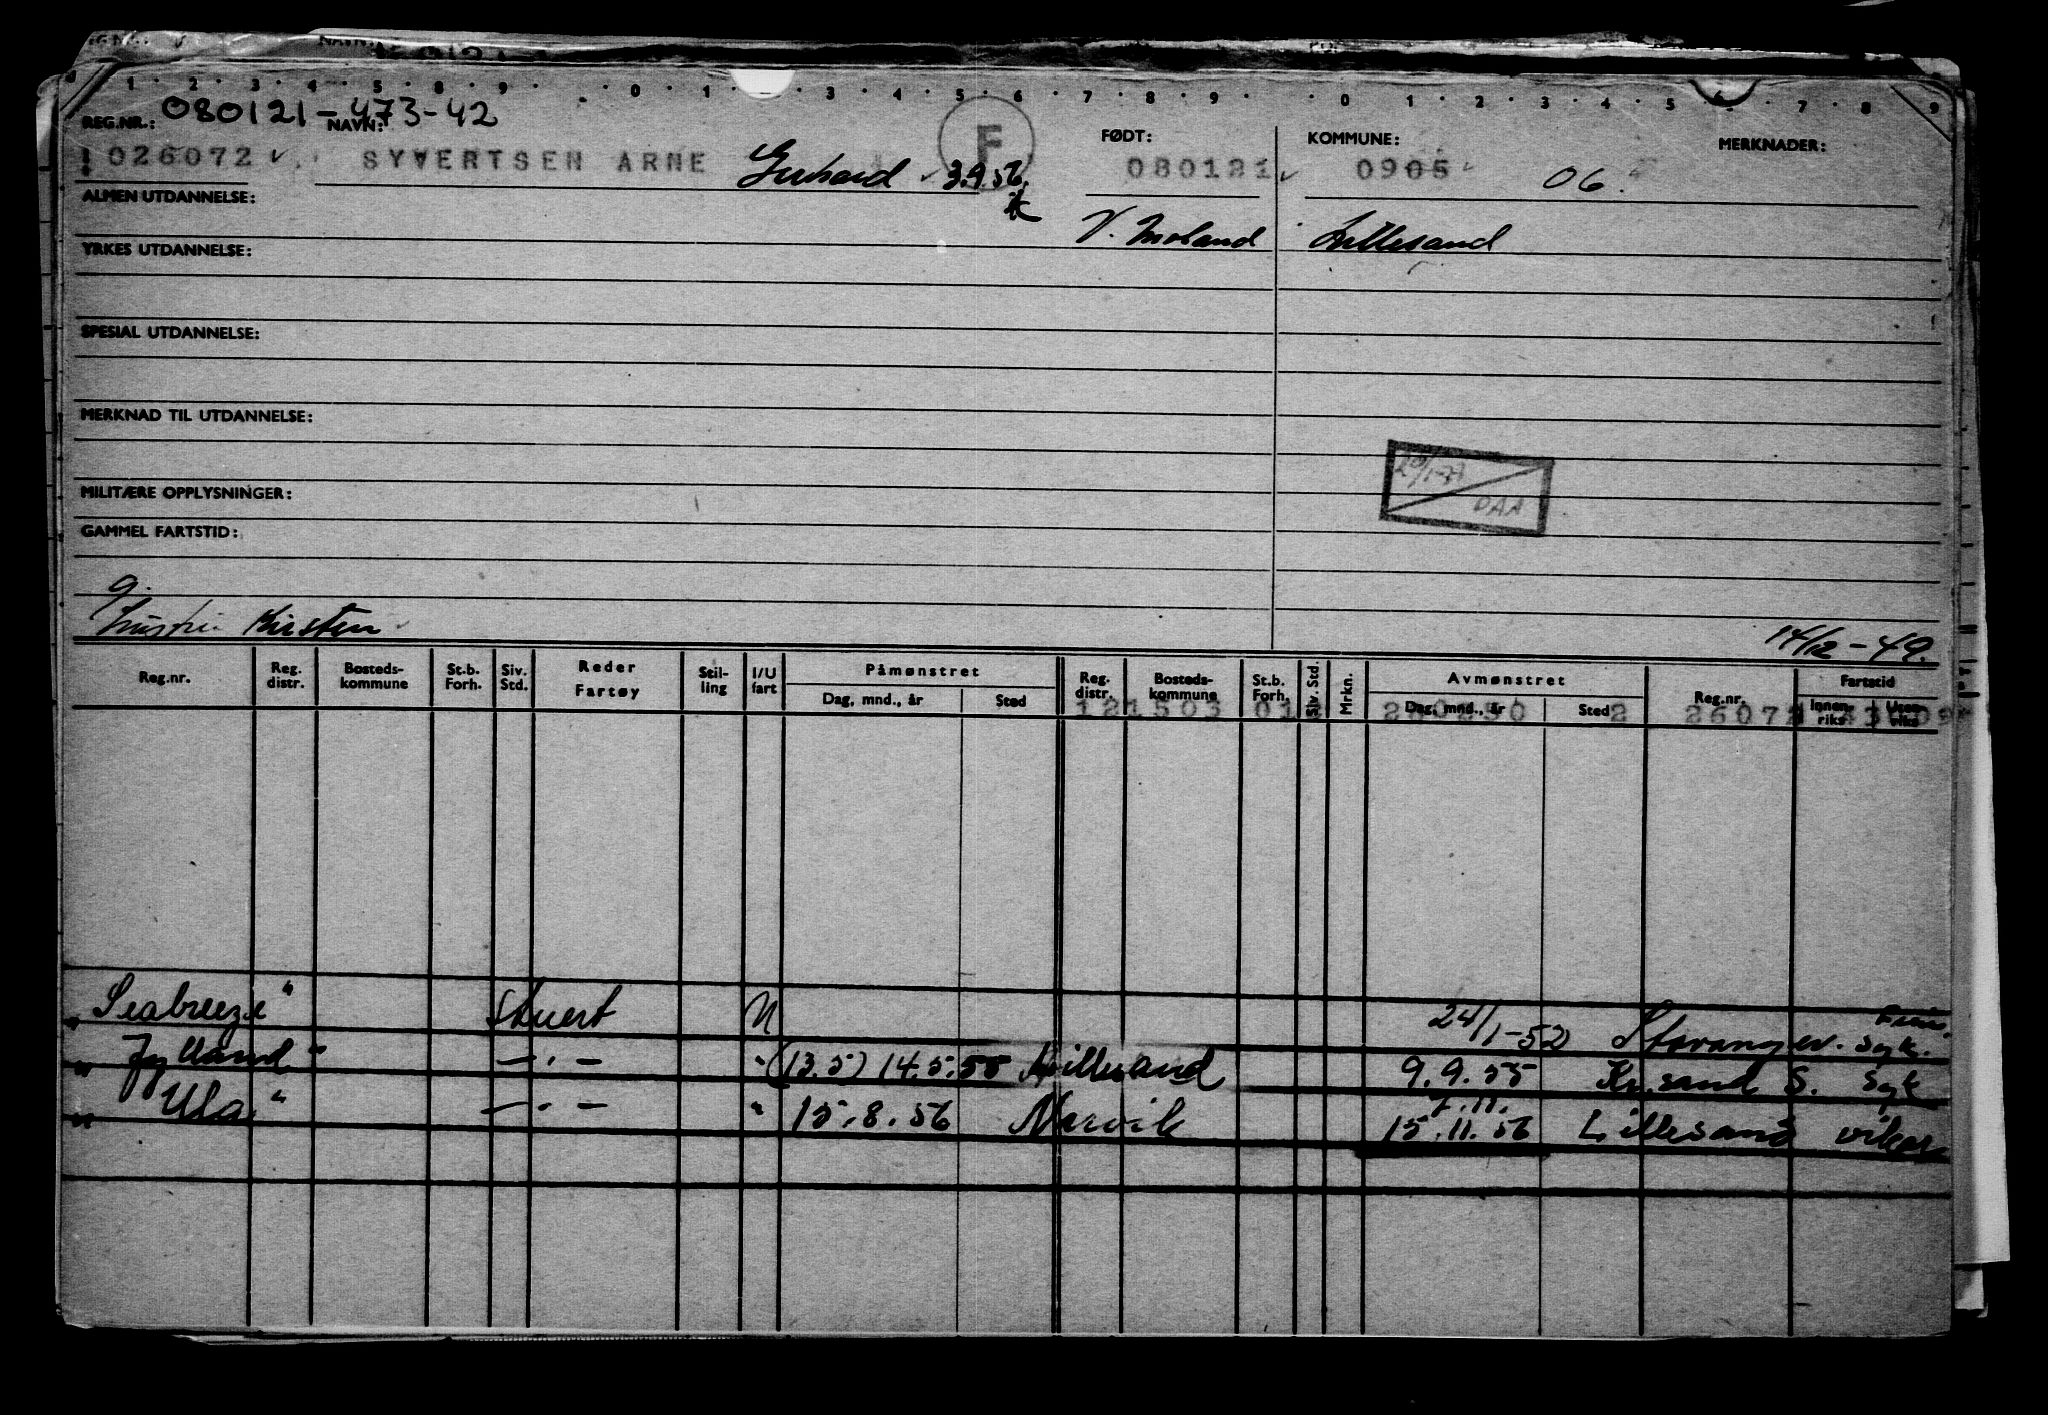 1 2 3 4 5 6 7 8 9 0 1 3 4 5 6 7 8 9 0 1 2 3 4 5 6 7 8 9
080121-473-42
REG.NR.: NAVN: FØDT: KOMMUNE: MERKNADER:
026072 SYVERTSEN ARNE Gerhard 3.9.56 F 080121 0905 06.
ALMEN UTDANNELSE:
V. Moland Lillesand
YRKES UTDANNELSE:
SPESIAL UTDANNELSE:
MERKNAD TIL UTDANNELSE:
20/1-71
DAA
MILITÆRE OPPLYSNINGER:
GAMMEL FARTSTID:
g.
hustru Kirsten 14/12-49.
Reg.nr. Reg. distr. Bosteds-kommune St.b. Forh. Siv. Std. Reder Fartøy Stil-ling I/U fart Påmønstret Dag, mnd., år Sted Reg. distr. Bosteds-kommune St.b. Forh. Siv. Std. Mrkn. Avmønstret Dag, mnd., år Sted Reg.nr. Fartstid Innen-riks Uten-riks
Seabreeze" Stuert U 24/1-52 Stavanger. syk.
"Jylland" —·— " (13.5) 14.5.55 Lillesand 9.9.55 Kr.sand S. Syk
"Ula" —·— " 15.8.56 Narvik 15.11.56 Lillesand vikar